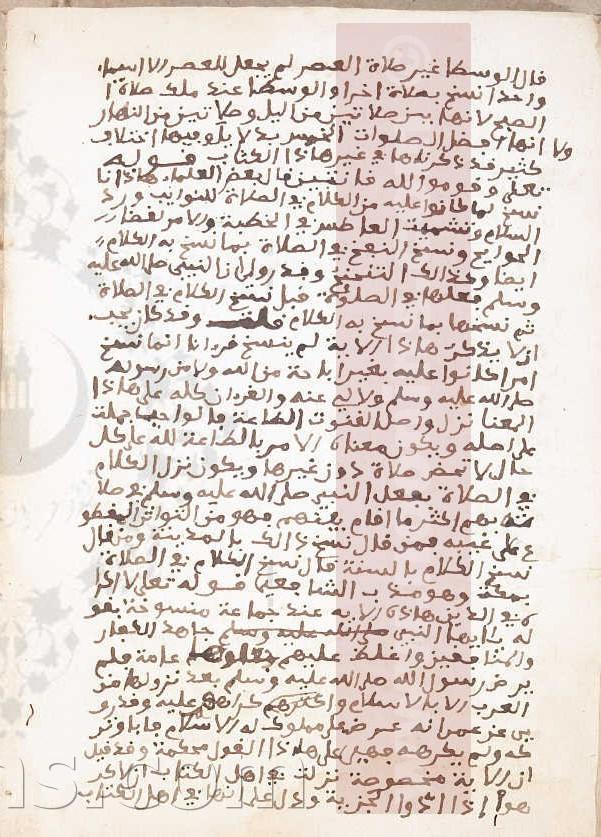 قال الوسطا غير صلاة العصر لم يجعل للعصر الا اسما
واحدا نسخ بصلاة اخرا والوسطا عند ملك صلاة ا
الصبح لانها بين صلاتين من اليل وصلاتين من النهار
ولا انها افضل الصلوات الخمس بدلايل وفيها اختلاف
كثير قد ذكرناه في غير هاذا الكتاب قوله
تعلى وقوموا لله قانتين قال بعض العلما هاذا نا
سخ لما كانوا عليه من الكلام في الصلاة للنوايب ورد
السلام وتشميت العاطس في الخطبة والامر بقضا
الحوايج ونسخ النفخ في الصلاة بما نسخ به الكلام
ايضا وكذالك التنحنح وقد روي ان النبي صلى الله عليه
وسلم فعلها في الصلوة قبل نسخ الكلام في الصلاة
ثم نسخها بما نسخ به الكلام وقد كان يجب
ان لا يذكر هاذا الاية لم ينسخ قرءانا انما نسخ
امرا كانوا عليه بغير اباحة من الله ولا من رسوله
صلى الله عليه وسلم ولا نهي عنه والقرءان كله على هاذا
المعنا نزل واصل القنوت الطاعة فالواجب حمله
على اصله ويكون معناه الامر بالطاعة لله على كل
حال لا تخص صلاة دون غيرها ويكون نزل الكلام
في الصلاة بفعل النبي صلى الله عليه وسلم في صلا
على غيبه فمن قال نسخ ذالك بالمدينة ومن قال
نسخ الكلام بالسنة قال نسخ الكلام في الصلاة
بمكة وهو مذهب الشافعي قوله تعلى لا اكرا
ه في الدين هاذه الاية عند جماعة منسوخة بقو
له يا ايها النبي صلى الله عليه وسلم جاهد الكفار
والمنافقين واغلظ عليهم عامة فلم
يرض رسول الله صلى الله عليه وسلم بعد نزولها من
العرب الا بالاسلام واكرههم عليه وقد رو
ي عن عمر انه عرض على مملوك له الاسلام فابا وتر
كه ولم يكرهه فهي على هاذا القول محكمة وقد قيل
ان الاية مخصوصة نزلت في اهل الكتاب الا يكر
هوا اذا ادوا الجزية ودل على انها في اهل الكتاب